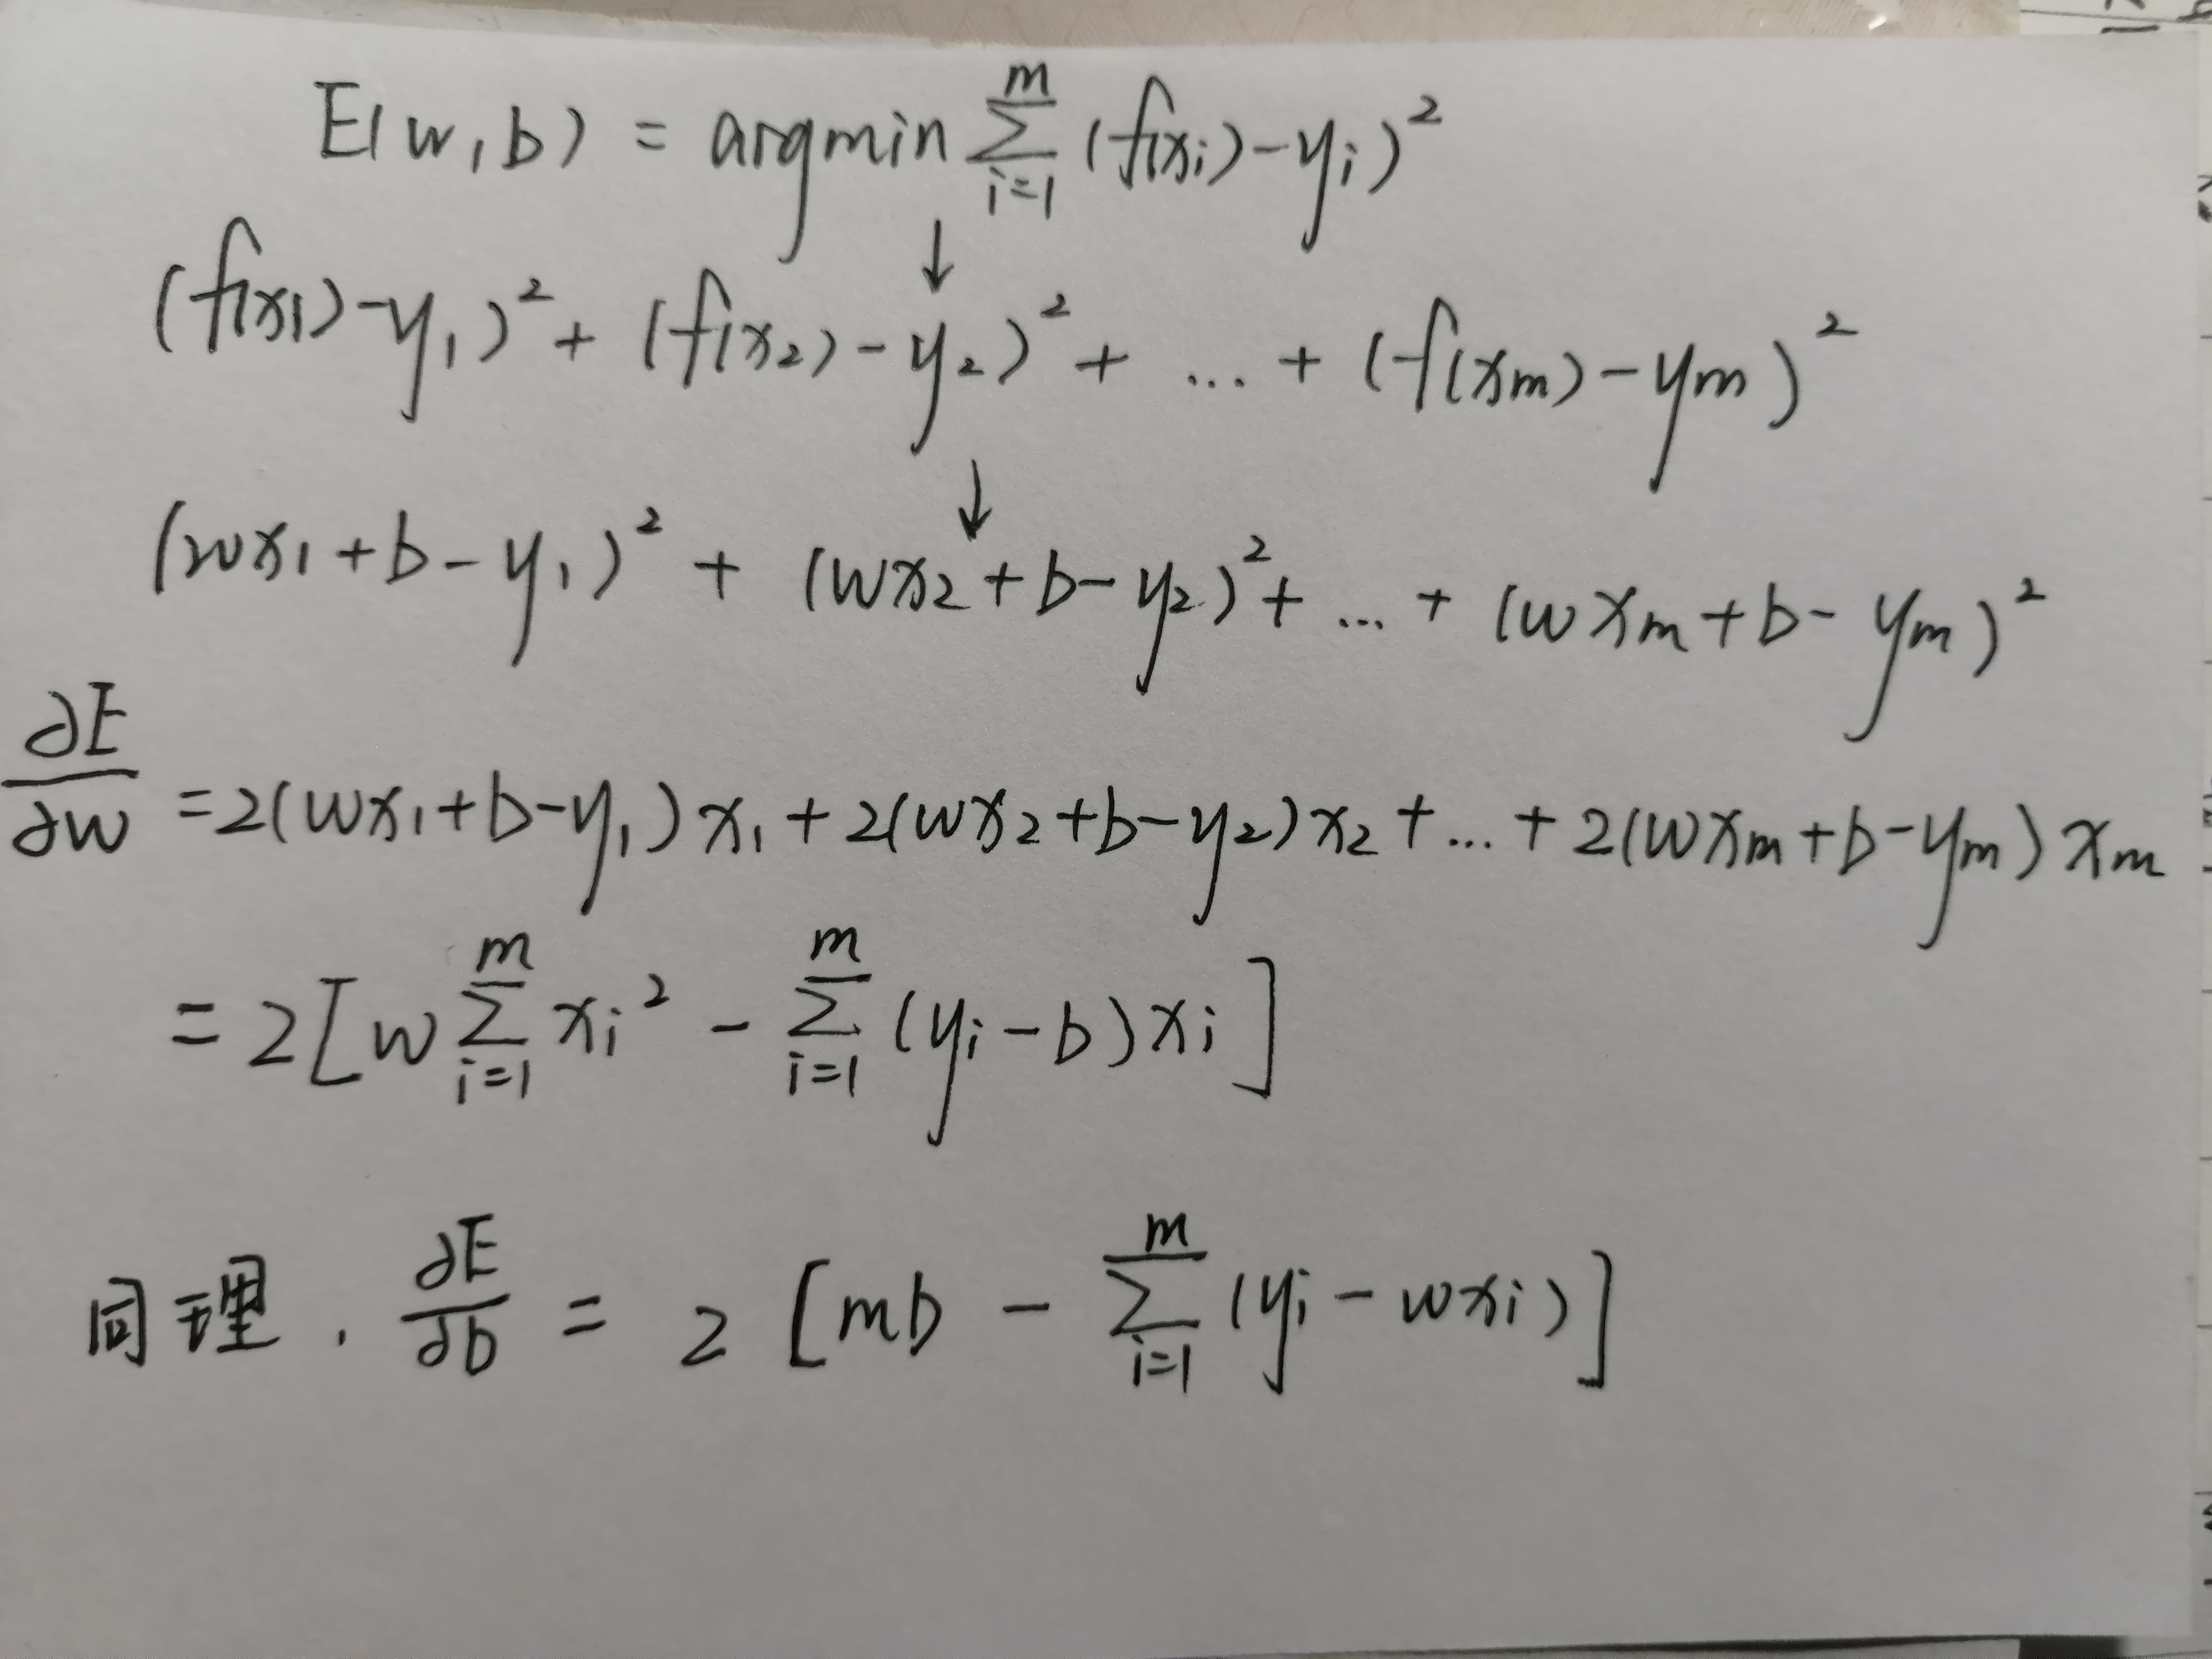 E(w,b) = argmin ∑_{i=1}^{m} (f(xi)-yi)²
↓
(f(x₁)-y₁)² + (f(x₂)-y₂)² + ... + (f(xm)-ym)²
↓
(wx₁+b-y₁)² + (wx₂+b-y₂)² + ... + (wxm+b-ym)²
∂E/∂w = 2(wx₁+b-y₁)x₁ + 2(wx₂+b-y₂)x₂ + ... + 2(wxm+b-ym)xm
= 2[w ∑_{i=1}^{m} xi² - ∑_{i=1}^{m} (yi-b)xi]
同理. ∂E/∂b = 2 [mb - ∑_{i=1}^{m} (yi-wxi)]